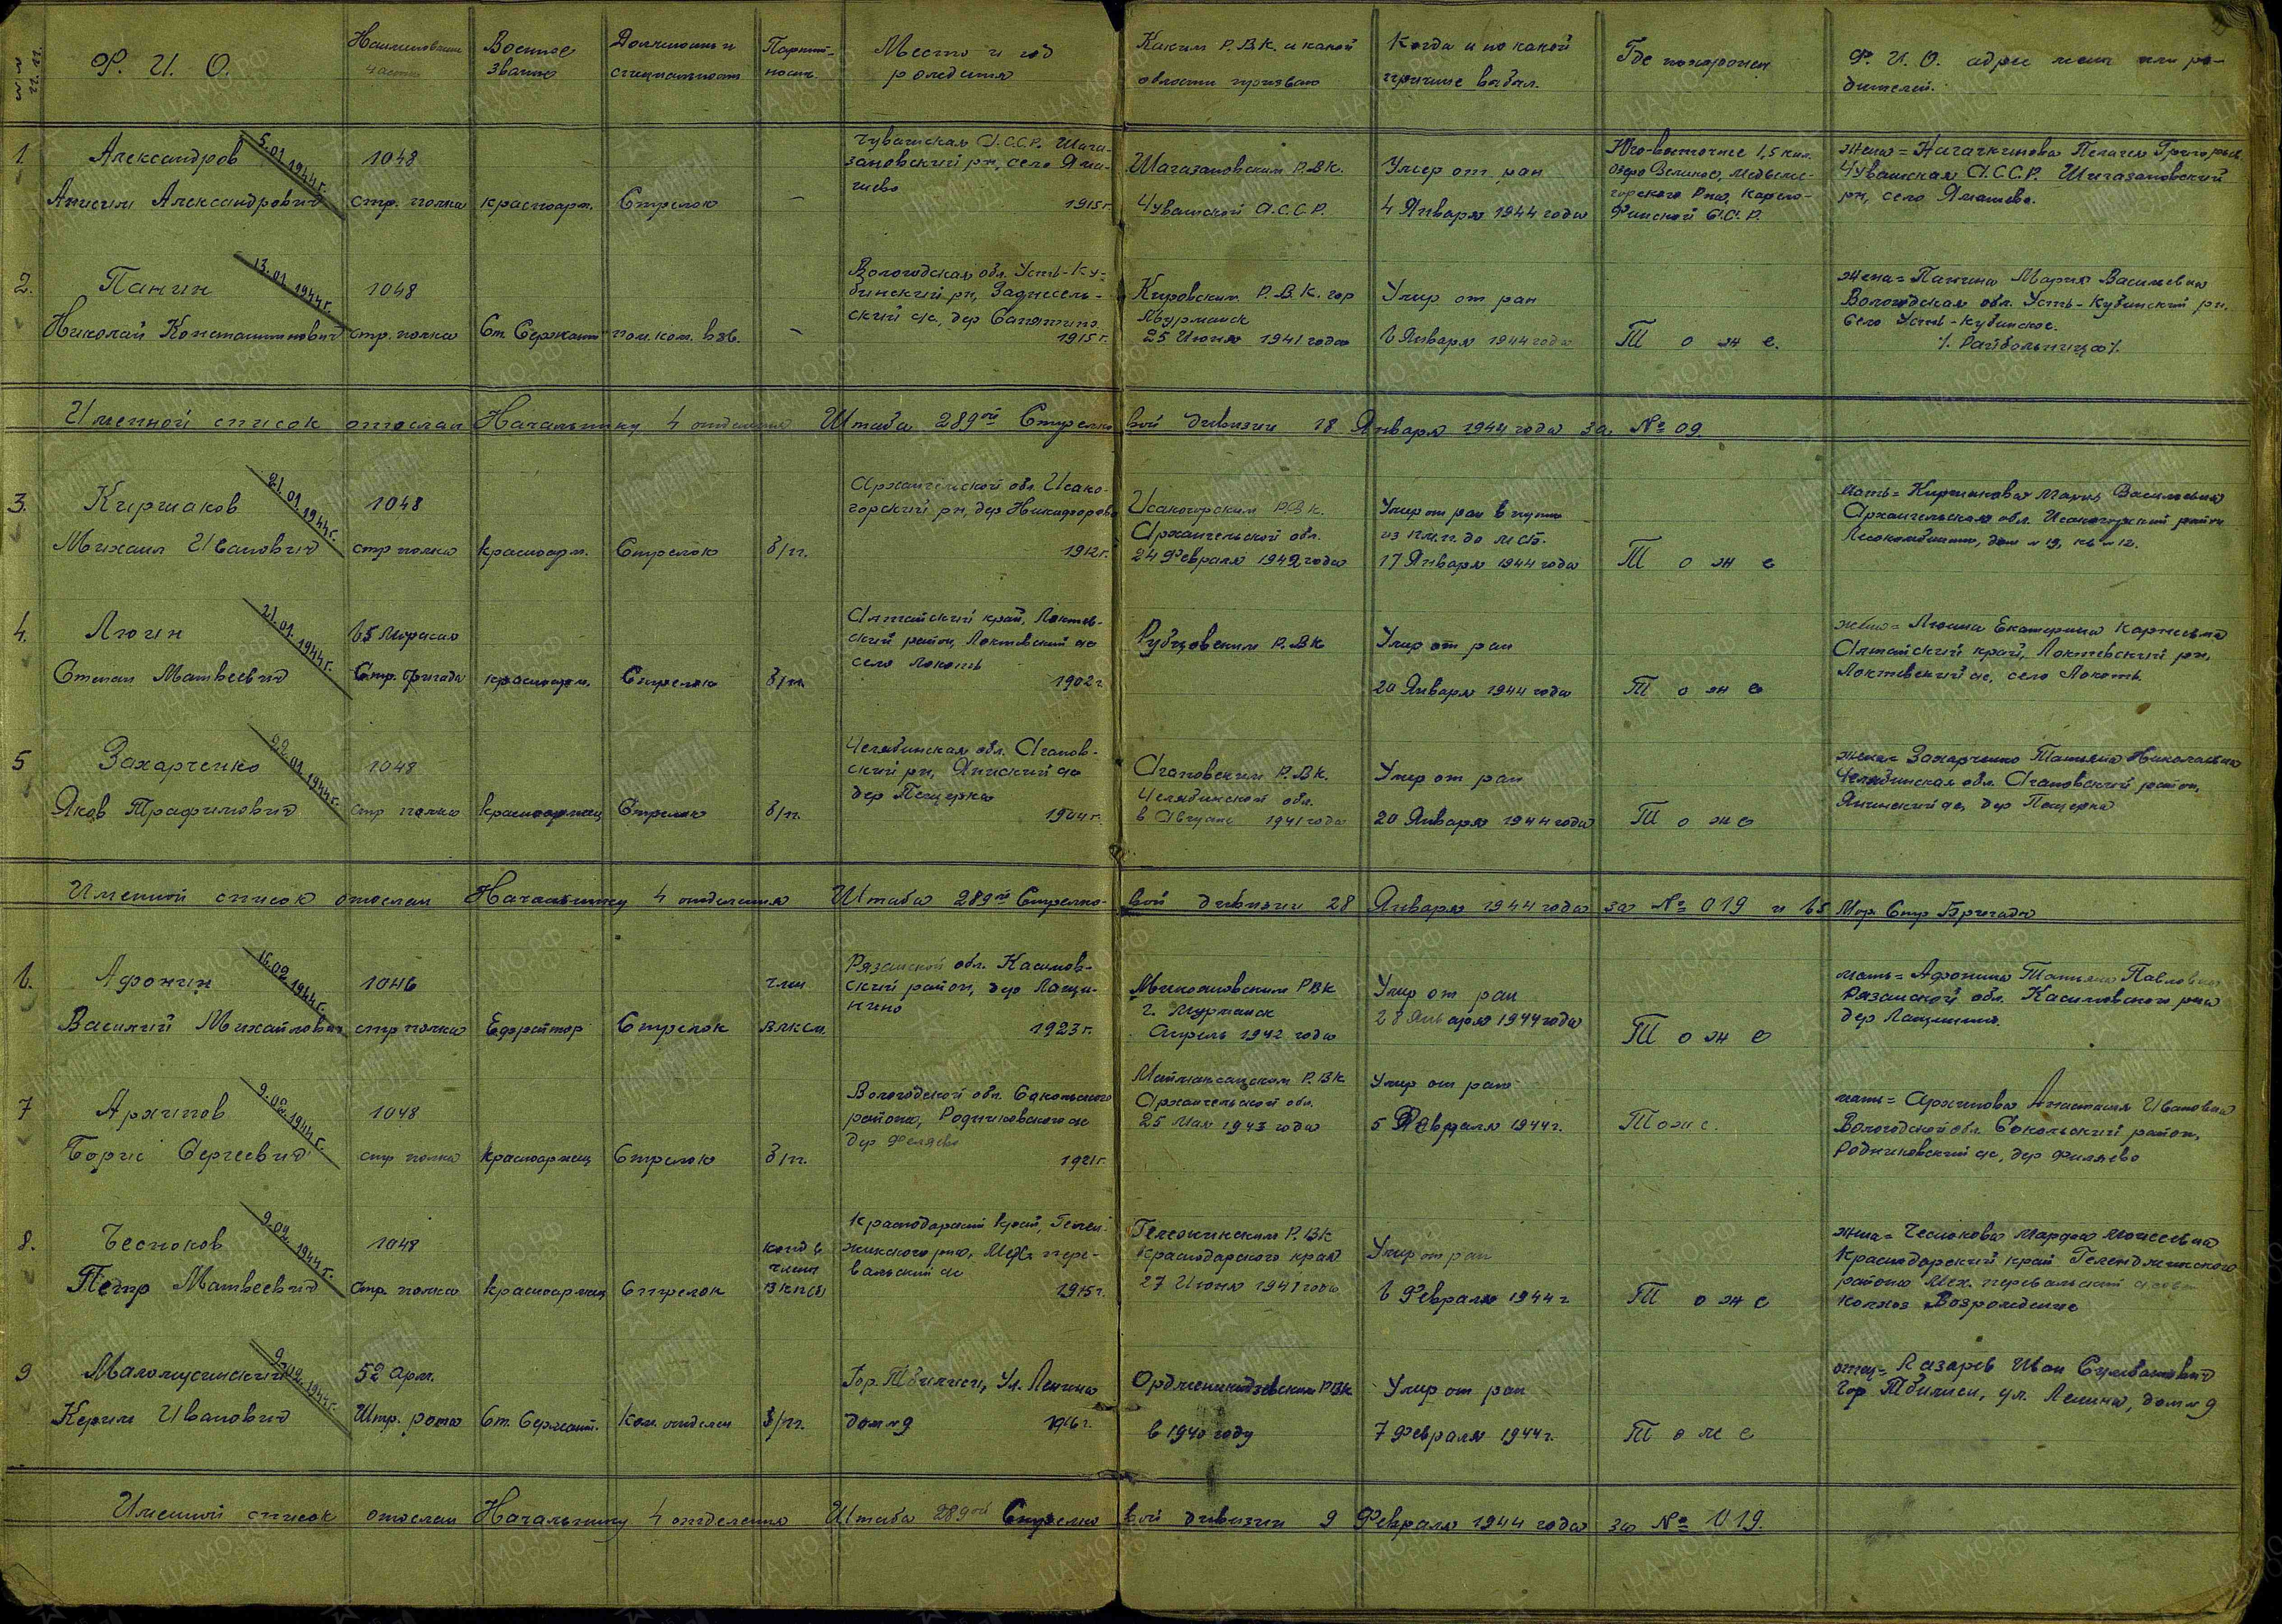 № № п.п.
Ф. И. О.
Наименование части
Военное звание
Должность и специальность
Партийность
Место и год рождения
Каким Р.В.К. и какой области призван
Когда и по какой причине выбыл.
Где похоронен
Ф. И. О. адрес жены или родителей.
1.
Александров
Анисим Александрович
5.01.1944г.
1048
стр. полка
красноарм.
Стрелок
–
Чувашская А.С.С.Р. Шига-
зановский рн, село Яма-
шево
1915г.
Шигазановским Р.В.К.
Чувашской А.С.С.Р.
Умер от ран
4 Января 1944 года
Юго-восточнее 1,5 км.
озеро Великое, Медвежье-
горского Р-на, Карело-
Финской С.С.Р.
жена = Пелагея Григорьев
Чувашская А.С.С.Р. Шигазановский
рн, село Ямашево.
2.
Панин
Николай Константинович
13.01.1944г.
1048
стр. полка
Ст. Сержант
пом. ком. взв.
–
Вологодская обл. Усть-Ку-
бинский рн, Заднесель-
ский с/с, дер
1915г.
Кировским Р.В.К. гор
Мурманск
25 Июня 1941 года
Умер от ран
6 Января 1944 года
Т о ж е.
жена = Панина Мария Васильевна
Вологодская обл. Усть-Кубинский рн.
село Усть-Кубинское.
⁒ Райбольница ⁒
Именной список отослан Начальнику 4 отделения Штаба 289ой Стрелковой дивизии 18 Января 1944 года за № 09.
3.
Киршаков
Михаил Иванович
21.01.1944г.
1048
стр полка
красноарм.
Стрелок
б/п.
Архангельской обл. Исако-
горский рн, дер Никифорово
1912г.
Исакогорским РВК.
Архангельской обл.
24 Февраля 1942 года
Умер от ран в пути
из п.м.п. до мсб.
17 Января 1944 года
Т о ж е
мать = Киршакова Мария Васильевна
Архангельская обл. Исакогорский район
Лесокомбинат, дом №19, кв №12.
4.
Люгин
Степан Матвеевич
21.01.1944г.
65 Морская
Стр. бригада
красноарм.
Стрелок
б/п.
Алтайский край, Локтев-
ский район, Локтевский с/с
село Локоть
1902г
Рубцовским Р.ВК
Умер от ран
20 Января 1944 года
Т о ж е
жена = Екатерина Карпеевна
Алтайский край, Локтевский рн,
Локтевский с/с, село Локоть.
5
Захарченко
Яков Трафимович
22.01.1944г.
1048
стр полка
красноармеец
Стрелок
б/п.
Челябинская обл. Агапов-
ский рн, с/с
дер Пещерка
1904г.
Агаповским Р.ВК.
Челябинской обл.
в Августе 1941 года
Умер от ран
20 Января 1944 года
Т о ж е
жена = Захарченко Татьяна Николаевна
Челябинская обл. Агаповский район,
с/с, дер Пещерка
Именной список отослан Начальнику 4 отделения Штаба 289ой Стрелко-вой дивизии 28 Января 1944 года за № 019 и 65 Мор Стр Бригада
6.
Афонин
Василий Михайлович
16.02.1944г.
1046
стр полка
Ефрейтор
Стрелок
член
ВЛКСМ
Рязанской обл. Касимов-
ский район, дер Лащи-
нино
1923г.
Микояновским РВК
г. Мурманск
Апрель 1942 года
Умер от ран
28 Января 1944 года
Т о ж е
мать = Афонина Татьяна Павловна
Рязанской обл. Касимовского р-на
дер Лащинино.
7
Архипов
Борис Сергеевич
9.02.1944г.
1048
стр полка
красноармеец
Стрелок
б/п.
Вологодской обл. Сокольского
района, Родниковского с/с
дер Филяево
1921г.
Маймаксанским Р.ВК
Архангельской обл.
25 Мая 1943 года
Умер от ран
5 Февраля 1944г.
Тоже.
мать = Архипова Анастасия Ивановна
Вологодской обл. Сокольский район,
Родниковский с/с, дер Филяево
8.
Чесноков
Петр Матвеевич
9.02.1944г.
1048
стр. полка
красноармеец
Стрелок
канд в
члены
ВКП(б)
Краснодарский край, Гелен-
жикского р-на, Мех. пере-
вальский с/с
1915г.
Геленжикским Р.ВК
Краснодарского края
27 Июня 1941 года
Умер от ран
6 Февраля 1944г
Т о ж е
жена = Чеснокова Марфа Моисеевна
Краснодарский край Геленджикского
района Мех. перевальский совет
колхоз Возрождение
9
Маломусинский
Керим Иванович
9.02.1944г.
52 Арм.
Штр. рота
Ст. Сержант.
Ком. отделен
б/п.
Гор. Тбилиси, Ул. Ленина
дом №9
1916г.
Орджоникидзевским РВК
в 1940 году
Умер от ран
7 Февраля 1944г.
Т о ж е
отец = Лазарев Иван
Гор. Тбилиси, ул. Ленина, дом №9
Именной список отослан Начальнику 4 отделения Штаба 289ой Стрелковой дивизии 9 Февраля 1944 года за № 019.